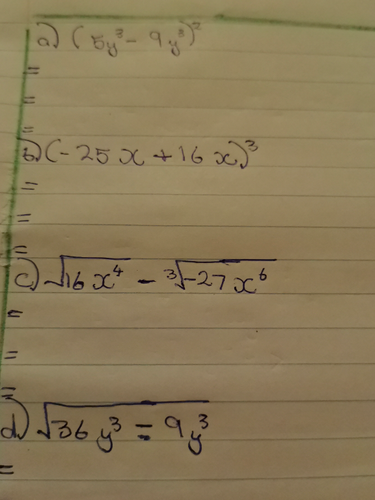 a) (5y³ - 9y³)²
=
=
=
b) (-25x + 16x)³
=
=
=
c) √16x⁴ - ³√-27x⁶
=
=
=
d) √36y³ = 9y³
=